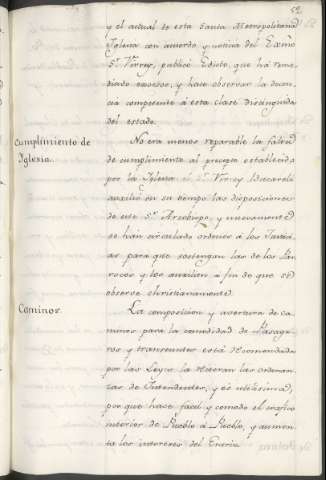 52
y el actual de esta Santa Metropolitana
Iglesia con acuerdo y noticia del Exmo
Sr. Virrey, publicó Edicto, que há reme
diado excesos, y hace observar la decen
cia competente á esta clase distinguida
del estado.
Cumplimiento de
Iglesia.
No era menos reparable la falta
de cumplimiento al precepto establecido
por la Iglesia el Sr. Virrey Bucareli
auxilió en su tiempo las disposiciones
de este Sr. Arzobispo, y nuevamente
se han circulado ordenes á los Justici
as para que sostengan las de los Pár
rocos y los auxilien á fin de que se
observe christianamente
Caminos.
La composicion y avertura de ca
minos para la comodidad de Pasage
ros y transeuntes está recomendada
por las Leyes la reiteran las ordenan
zas de Intendentes, y es utilisima,
por que hace facil y comodo el trafico
interior de Pueblo á Pueblo, y aumen
ta los intereses del Erario